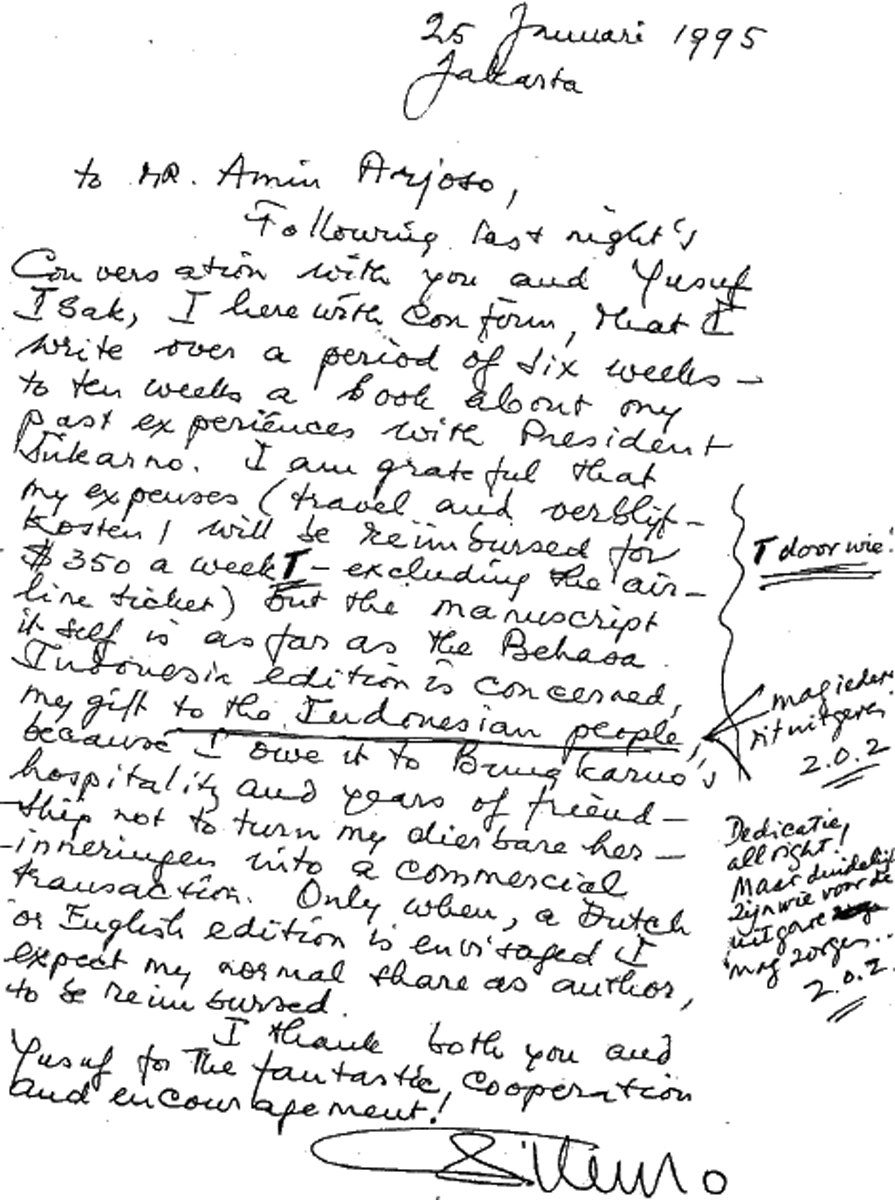 25 Januari 1995
Jakarta
to MR. Amin Arjoso,
Following last night's
Conversation with you and Yusuf
ISak, I herewith Conform, that I
write over a period of six weeks –
to ten weeks a book about my
past experiences with President
Sukarno. I am grateful that
my expenses (travel and verblijf-
kosten) will be reimbursed for
$350 a week T – excluding the air-
line ticket) but the manuscript
it self is as far as the Behasa
Indonesia edition is concerned,
my gift to the Indonesian people,
because I owe it to Bung Karno's
hospitality and years of friend-
ship not to turn my dierbare her-
-inneringen into a commercial
transaction. Only when, a Dutch
or English edition is envisaged I
expect my normal share as author,
to be reimbursed.
I thank both you and
Yusuf for The fantastic, cooperation
and encouragement!
T door wie!
mag iedere
uitgeven
2.0.2
Dedicatie,
all right!
Maar duidelijk
zijn wie voor de
uitgave
mag zorgen..
2.0.2